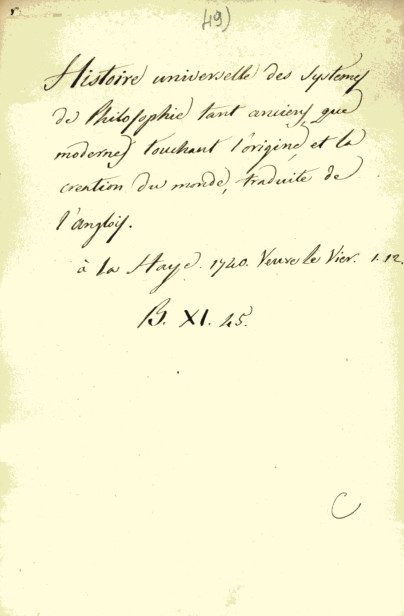 49)
Histoire universelle des Systemes
de Philosophie tant anciens que
modernes touchant l'origine et la
creation du monde, traduite de
l'anglois.
à la Haye. 1740. Veuve le Vier. 1.12.
B. XI. 45.
C